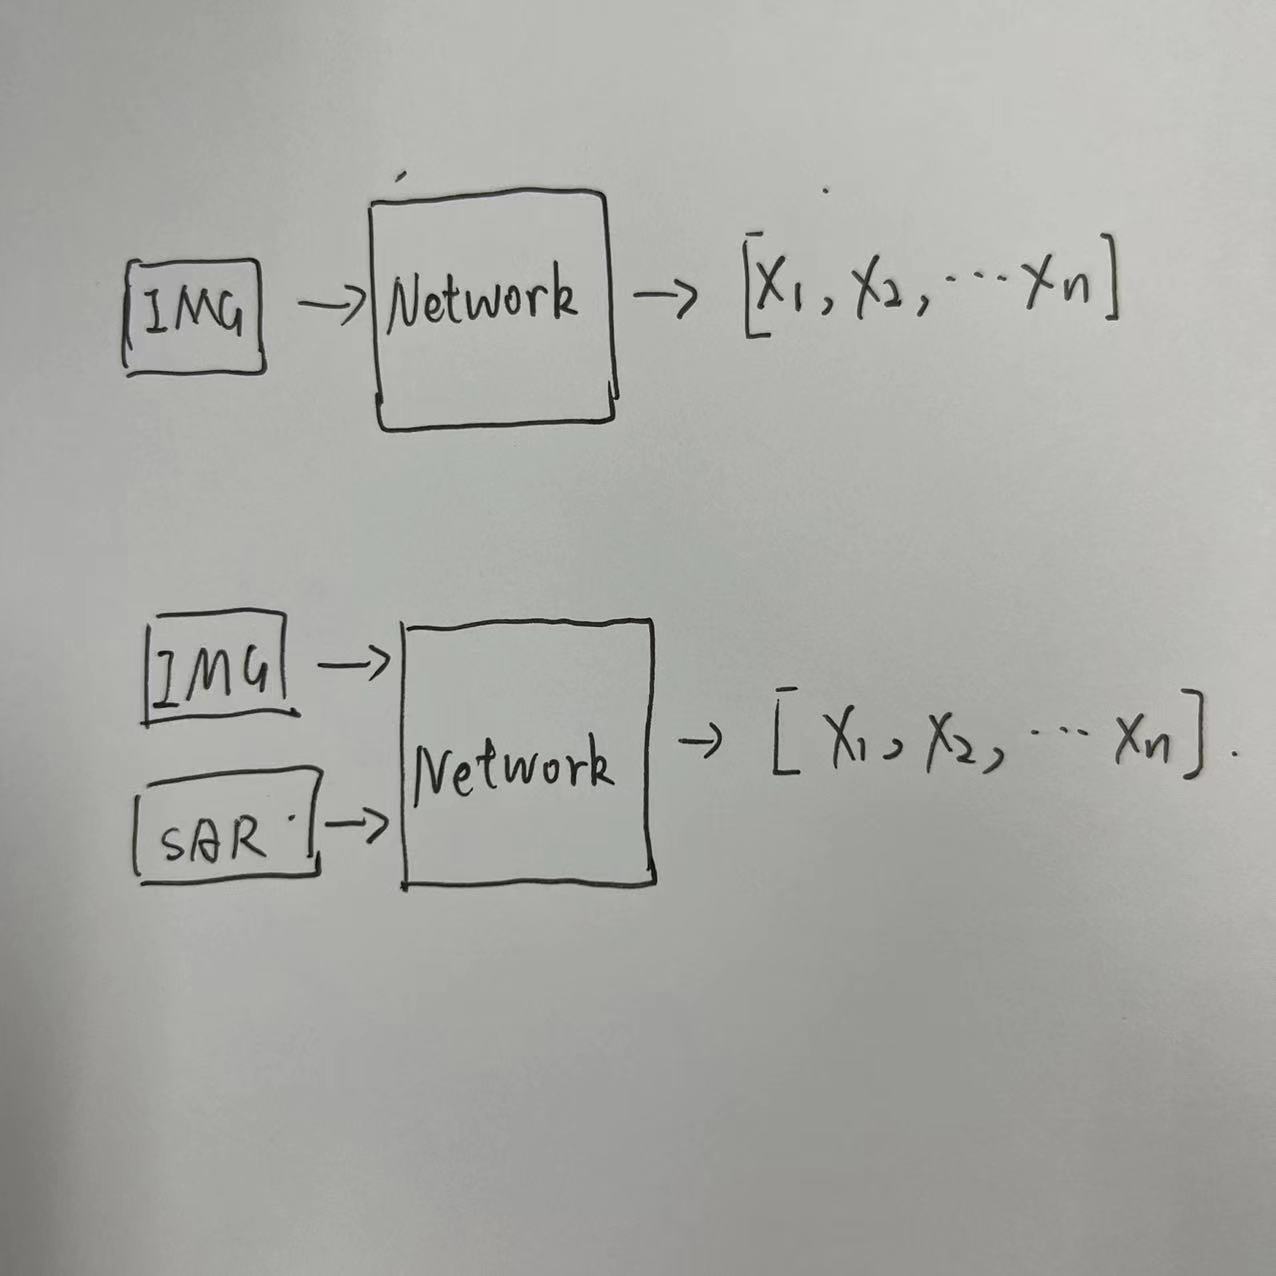 IMG → Network → [x₁, x₂, ... xₙ]
IMG → Network → [x₁, x₂, ... xₙ].
SAR →